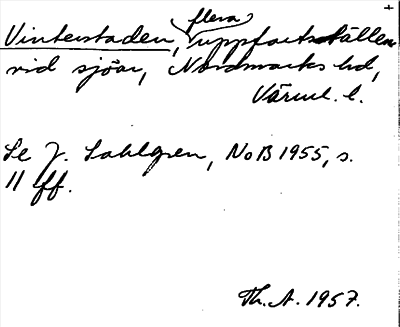 flera
Vinterstaden, uppfartsställen
vid sjöar, Nordmarks hd,
Värml. l.
Se J. Sahlgren, NoB 1955, s.
11 ff.
Th. A. 1957.